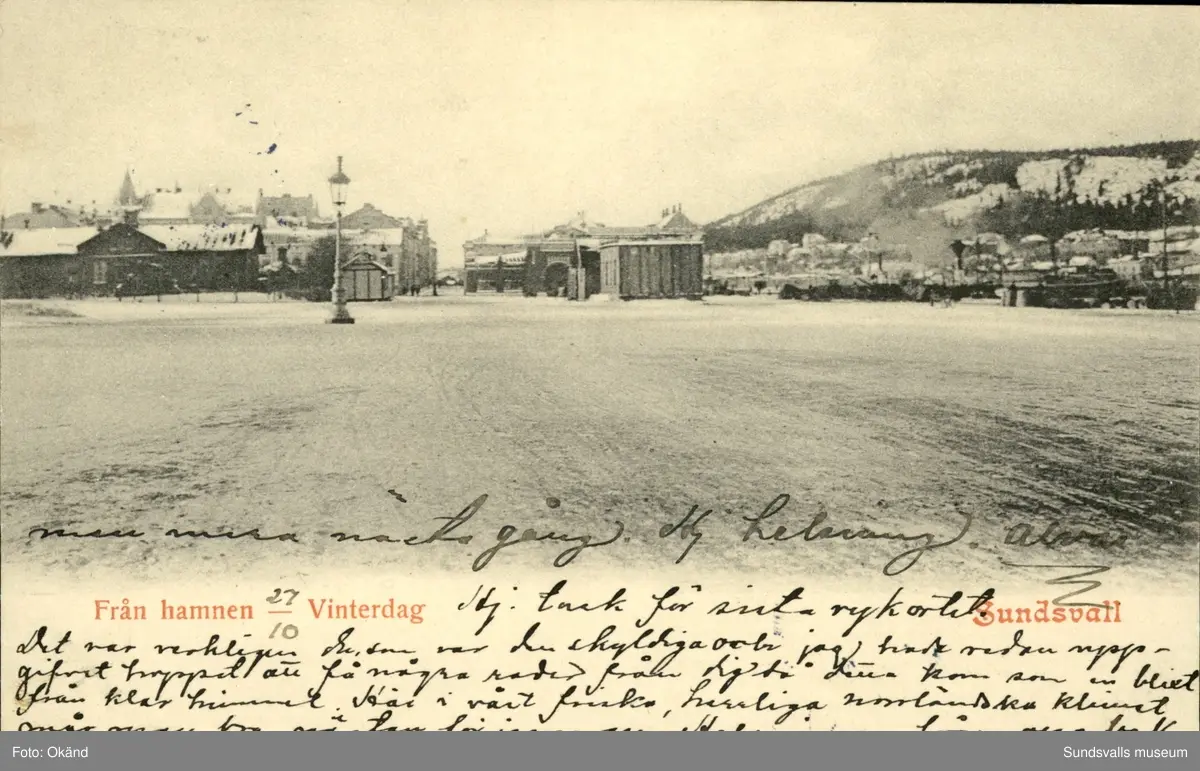 men mera nästa gång. Hj helsning. Alva
Från hamnen 27/10 Vinterdag Hj. tack för sista vykortet. Sundsvall
Det var verkligen du, som var den skyldiga och jag hade redan upp-
gifvet hoppet att få några rader från dig då detta kom som en blixt
från klar himmel. Här i vårt friska, herrliga norrländska klimat
mår man bra
Foto: Okänd
Sundsvalls museum